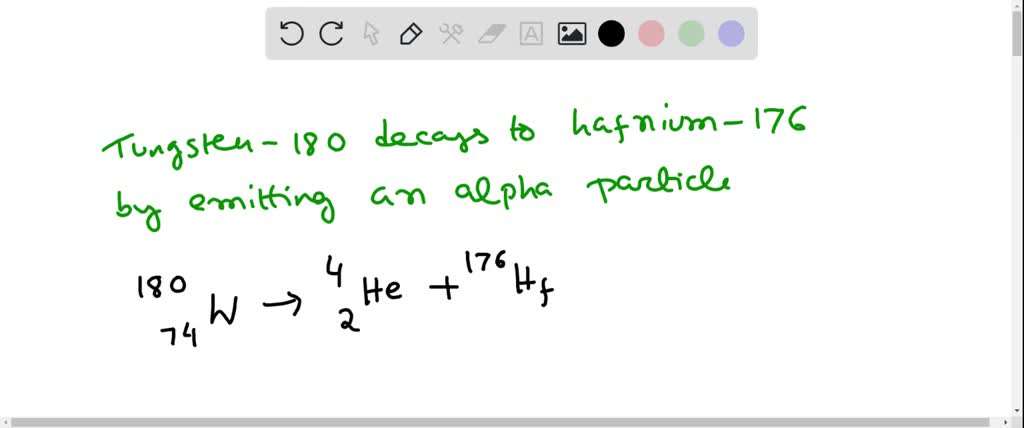 Tungsten - 180 decays to hafnium - 176
by emitting an alpha particle
¹⁸⁰₇₄W → ⁴₂He + ¹⁷⁶Hf